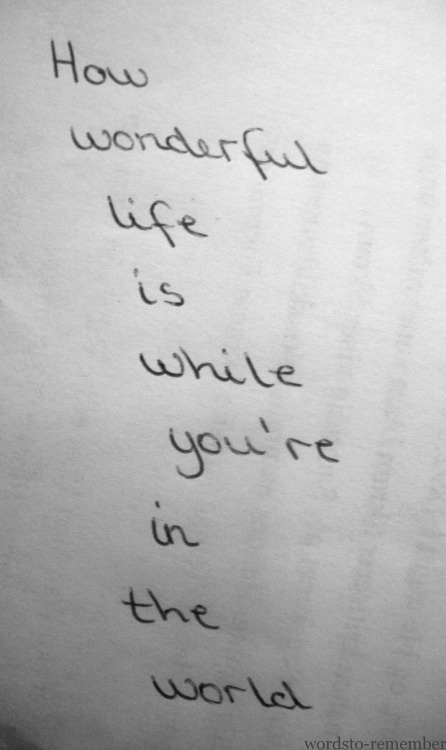 How
wonderful
life
is
while
you're
in
the
world
wordsto-remember